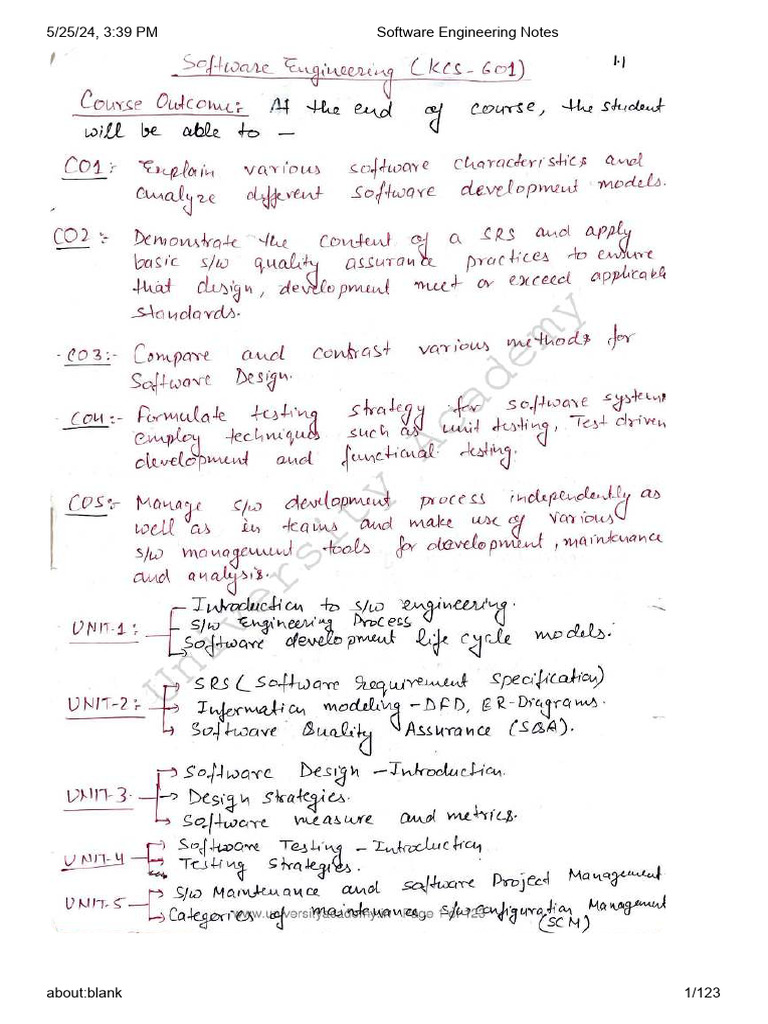 5/25/24, 3:39 PM Software Engineering Notes
Software Engineering (KCS-601) 1.1
Course Outcome:- At the end of course, the student
will be able to —
CO1:- Explain various software characteristics and
analyze different software development models.
CO2:- Demonstrate the content of a SRS and apply
basic s/w quality assurance practices to ensure
that design, development meet or exceed applicable
standards.
CO3:- Compare and contrast various methods for
Software Design.
CO4:- Formulate testing strategy for software systems
employ techniques such as unit testing, Test driven
development and functional testing.
CO5:- Manage s/w development process independently as
well as in teams and make use of various
s/w management tools for development, maintenance
and analysis.
UNIT-1:- Introduction to s/w engineering.
S/W Engineering Process
Software development life cycle models.
UNIT-2:- SRS (Software Requirement Specification)
Information modeling - DFD, ER-Diagrams.
Software Quality Assurance (SQA).
UNIT-3 Software Design - Introduction.
Design Strategies.
Software measure and metrics.
UNIT-4 Software Testing - Introduction
Testing Strategies.
UNIT-5 S/W Maintenance and Software Project Management
Categories of maintenance, s/w configuration Management
(SCM)
www.universityacademy.in Page 1 of 123
University Academy
about:blank 1/123